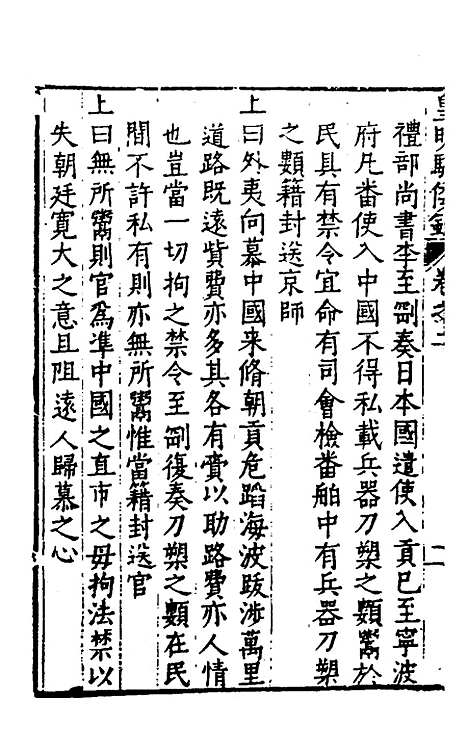 皇明馭倭錄 卷之二 二
禮部尚書李至剛奏日本國遣使入貢已至寧波
府凡番使入中國不得私載兵器刀槊之類鬻於
民具有禁令宜命有司會檢番舶中有兵器刀槊
之類籍封送京師
上曰外夷向慕中國来脩朝貢危蹈海波跋涉萬里
道路既遠貲費亦多其各有賫以助路費亦人情
也豈當一切拘之禁令至剛復奏刀槊之類在民
間不許私有則亦無所鬻惟當籍封送官
上曰無所鬻則官為準中國之直市之毋拘法禁以
失朝廷寛大之意且阻遠人歸慕之心